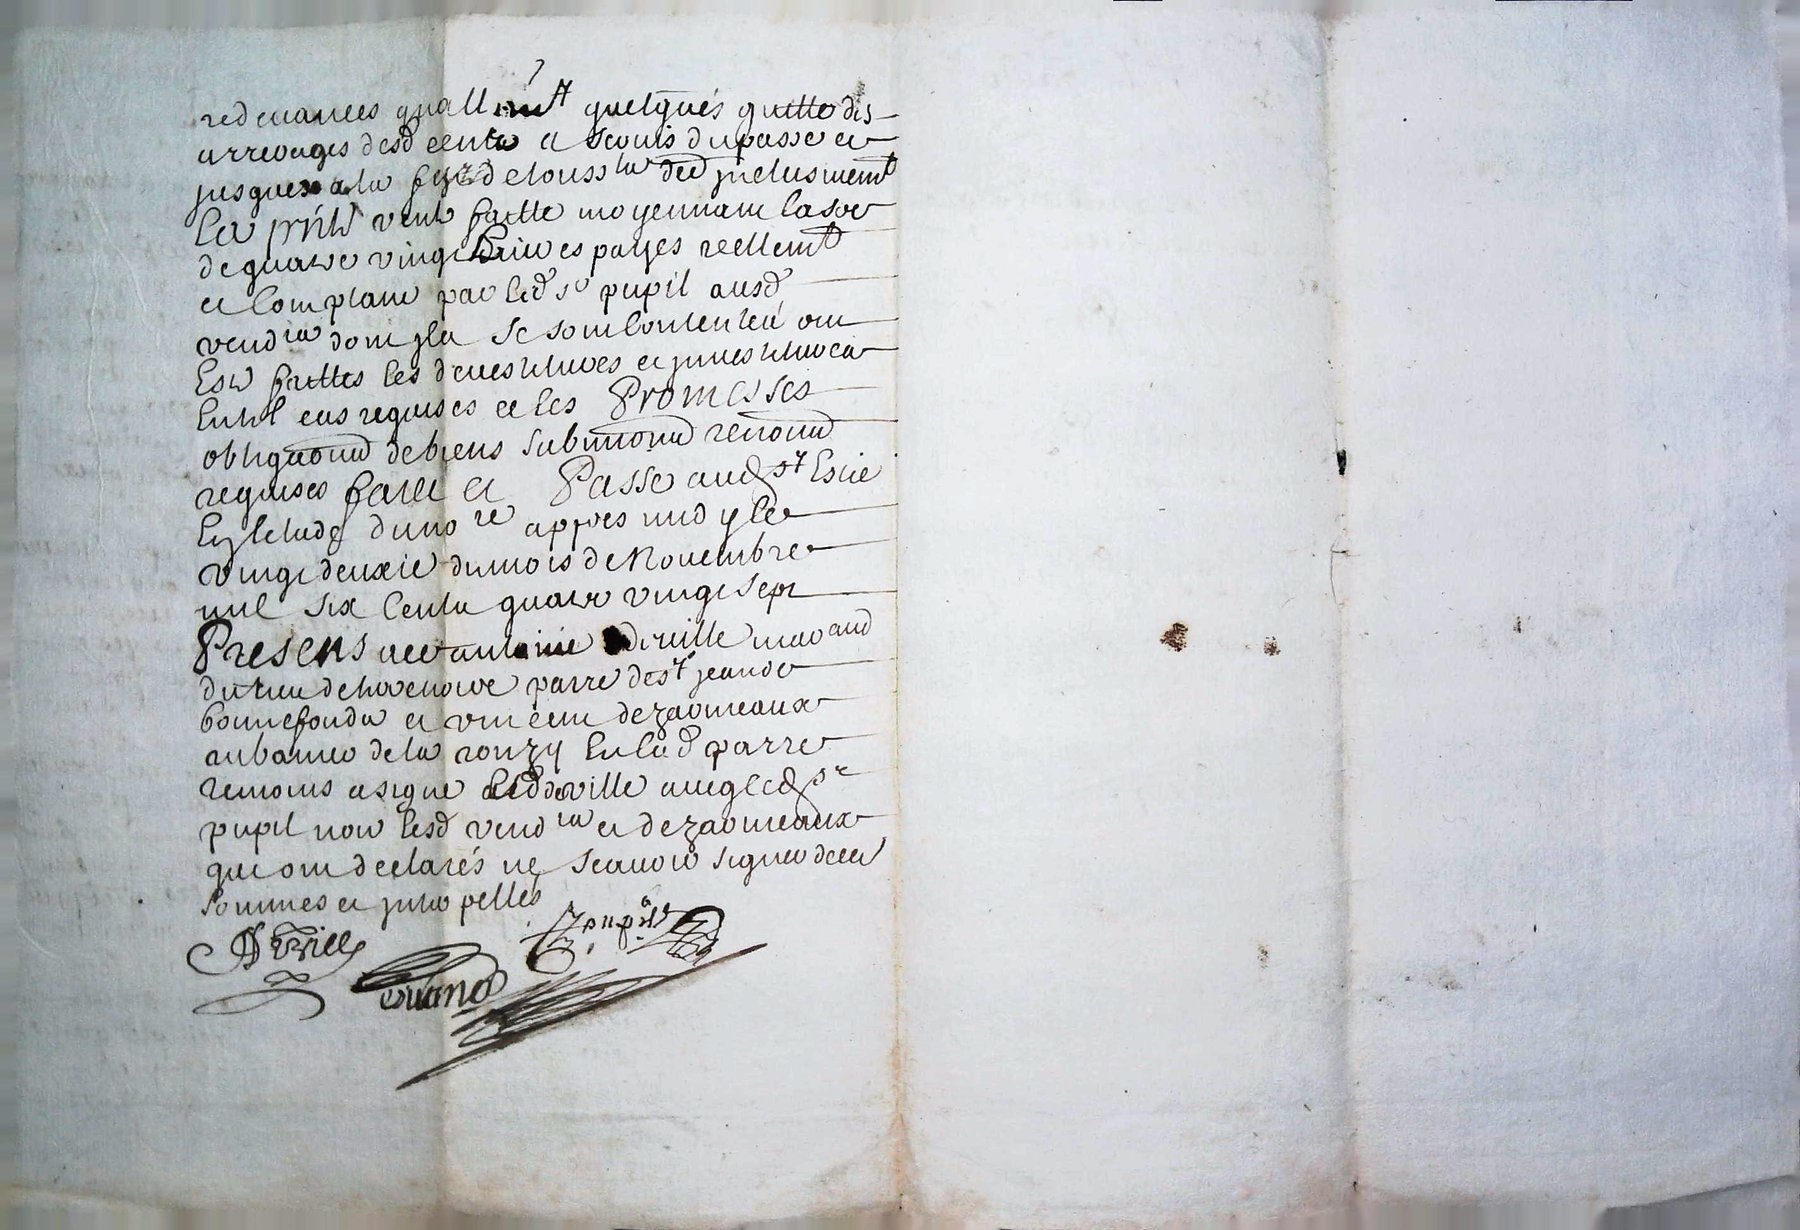 redevances quallem.t quelques quitte des
arreyages desd cents et servis du passe et
jusques a la feste de touss.ts der inclusivem.t
La p.nte vente faitte moyennant la so.e
de quatre vingt livres payes reellem.t
et Comptant par led s.r pupil ausd
vend.rs dont jls se sont Contentés ont
Este faittes les devestitures et jnvestitures
En tel cas requises et les Promesses
obliga.ons de biens submi.ons renon.ons
requises faitt et Passé aud s.t Esti.e
Estude du no.re appres midy le
vingt deuxie du mois de Novembre
mil six Cents quatre vingt sept
Presens a ce antoine deville mar.and
du lieu de parre de s.t jean de
bonnefonds et vincent dezaomeaux
rubanier de la ronzy En lad parre
temoins a signe led deville avec led s.r
pupil non lesd vend.rs et dezaomeaux
qui ont declarés ne scavoir signer de ce
sommes et jnterpellés
Deville
pupil